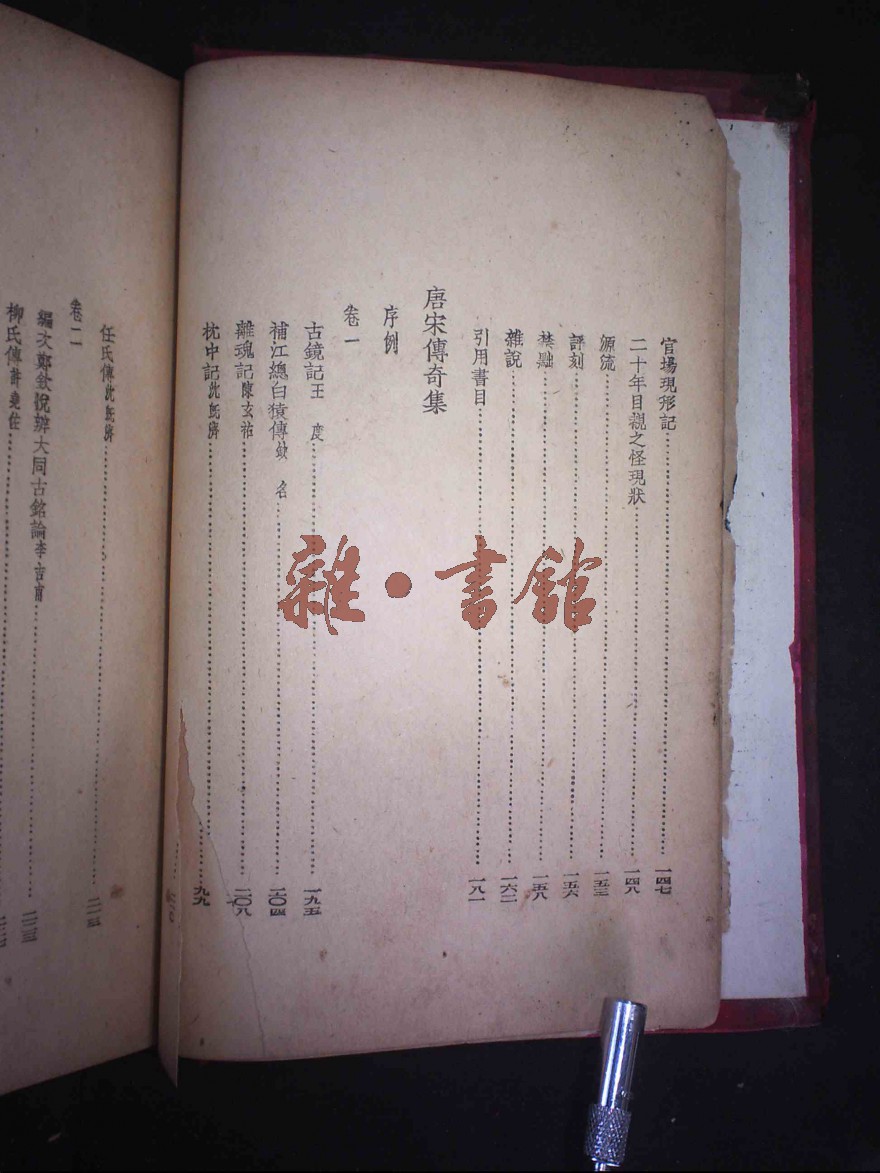 官場現形記 一四七
二十年目覩之怪現狀 一四八
源流 一五三
評刻 一五六
禁黜 一五八
雜說 一六二
引用書目 一八一
唐宋傳奇集
序例
卷一
古鏡記王 度 一九五
補江總白猿傳缺 名 二〇四
離魂記陳玄祐 二〇八
枕中記沈旣濟
任氏傳沈旣濟
卷二
編次鄭欽悅辨大同古銘論李吉甫 二二三
柳氏傳許堯佐
雜·書館